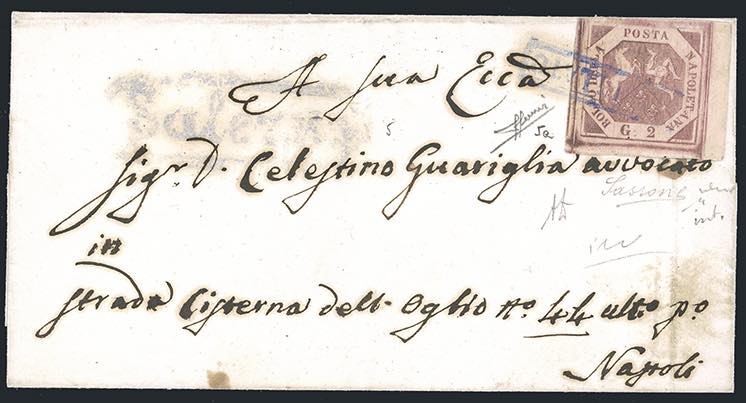 POSTA
BOLLO DELLA
NAPOLETANA
G. 2
A sua Ecc.a
5
5a
Sig.r D. Celestino Guariglia avvocato
Sassone
int.
in
strada Cisterna dell' Oglio n.o 44 ult.o p.o
Napoli